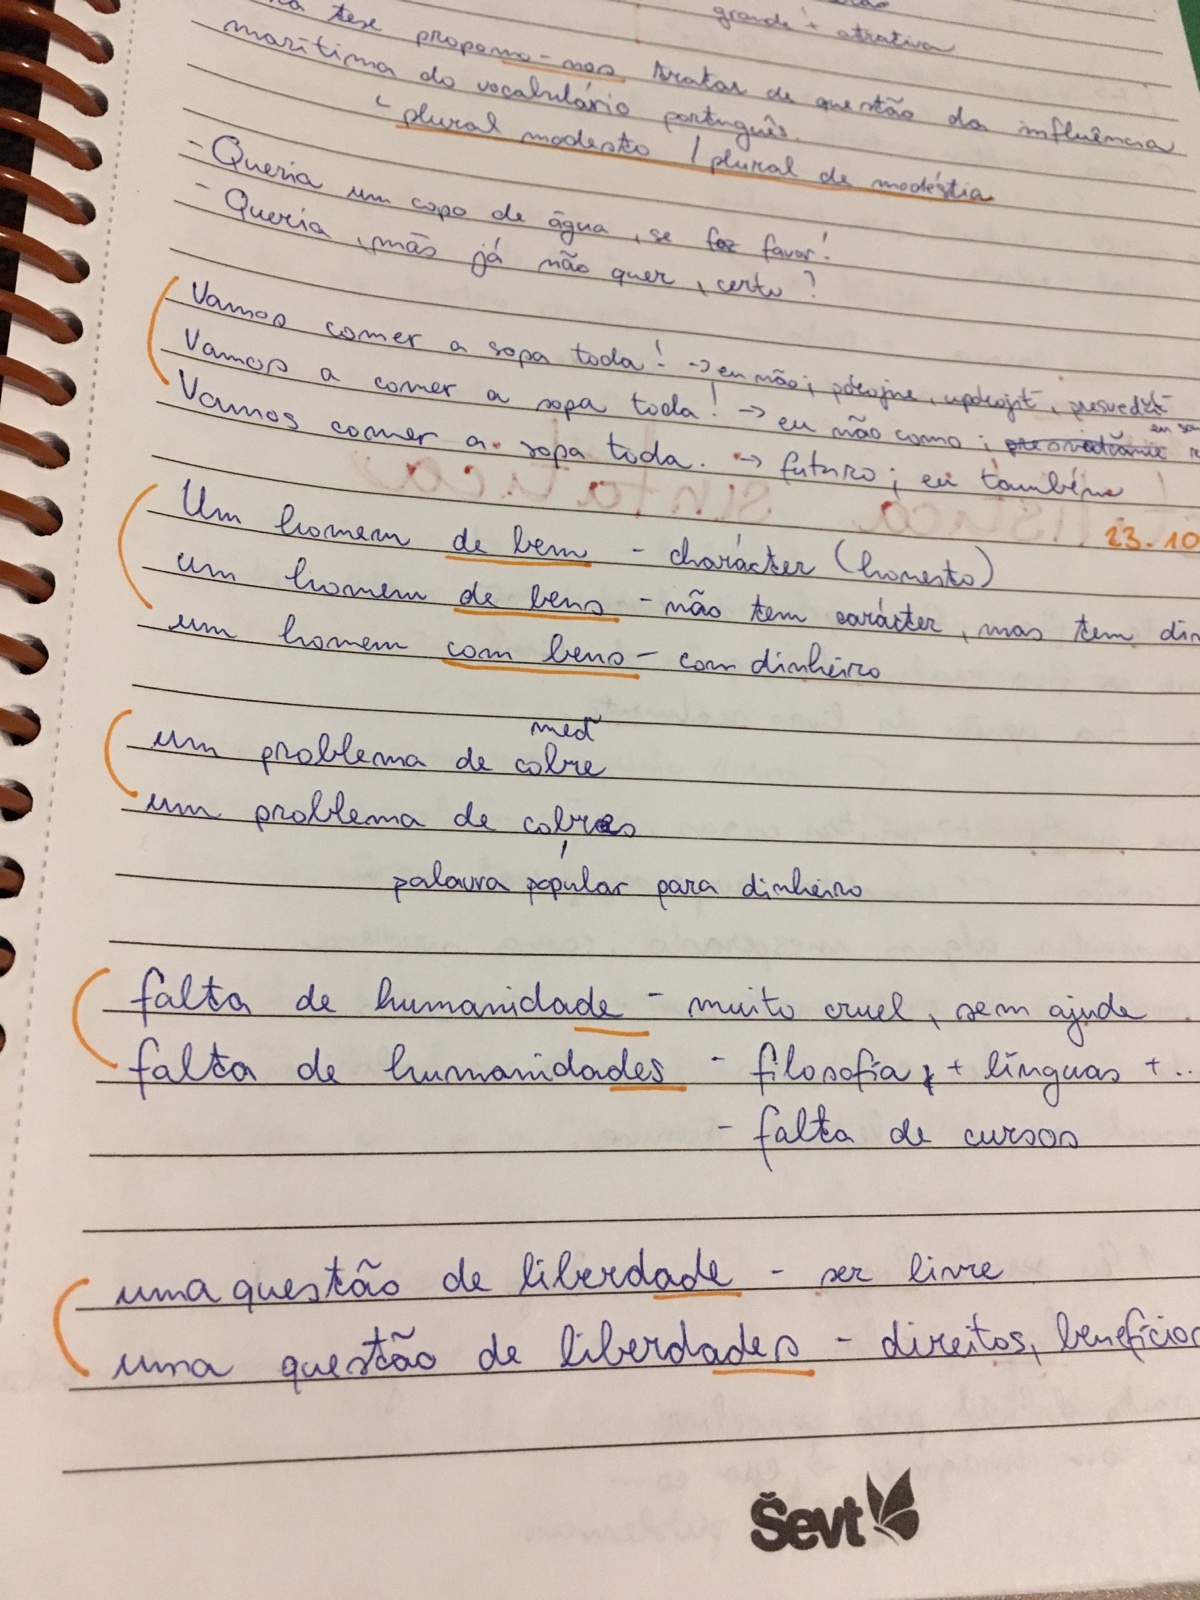 grande + atrativa
tese propomo-nos tratar de questão da influência
marítima do vocabulário português.
plural modesto / plural de modéstia
- Queria um copo de água, se fez favor!
- Queria, mas já não quer, certo?
Vamos comer a sopa toda! → eu não;
Vamos a comer a sopa toda! → eu não como;
Vamos comer a sopa toda. → futuro; eu também
23.10
Um homem de bem - charácter (honesto)
um homem de bens - não tem carácter, mas tem din
um homem com bens - com dinheiro
meď
um problema de cobre
um problema de cobres
palavra popular para dinheiro
falta de humanidade - muito cruel, sem ajuda
falta de humanidades - filosofia, + línguas + ..
- falta de cursos
uma questão de liberdade - ser livre
uma questão de liberdades - direitos, benefícios
Ševt